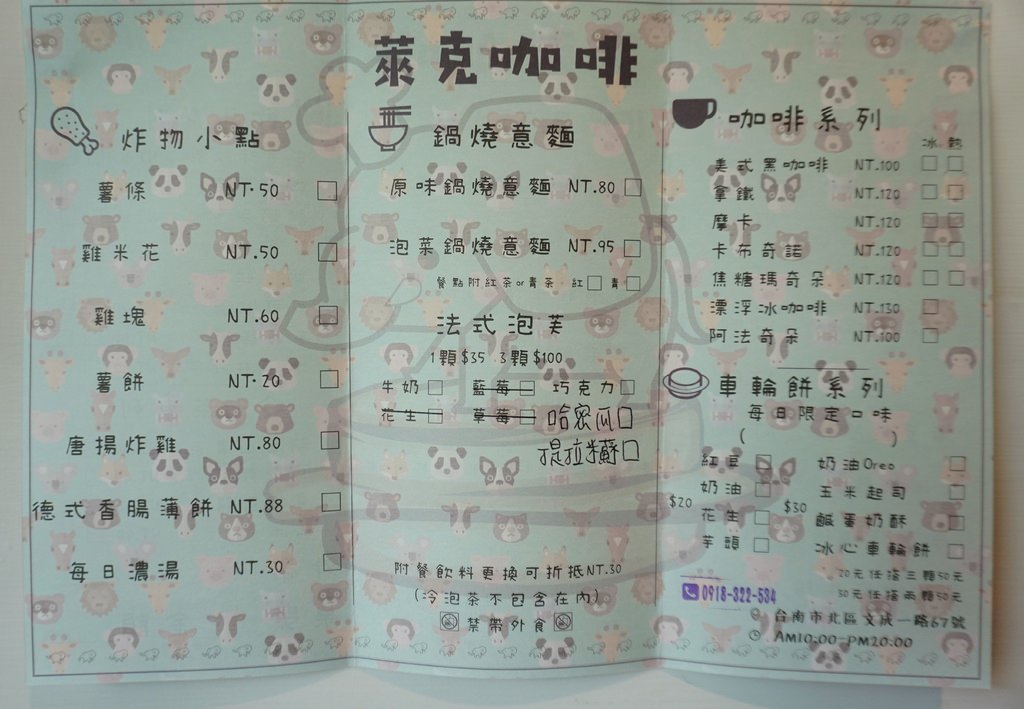 萊克咖啡
炸物小點
薯條 NT.50
雞米花 NT.50
雞塊 NT.60
薯餅 NT.20
唐揚炸雞 NT.80
德式香腸薄餅 NT.88
每日濃湯 NT.30
鍋燒意麵
原味鍋燒意麵 NT.80
泡菜鍋燒意麵 NT.95
餐點附紅茶or青茶 紅 青
法式泡芙
1顆$35 3顆$100
牛奶 藍莓 巧克力
花生 草莓 哈密瓜
提拉米蘇
附餐飲料更換可折抵NT.30
(冷泡茶不包含在內)
禁帶外食
咖啡系列
冰 熱
美式黑咖啡 NT.100
拿鐵 NT.120
摩卡 NT.120
卡布奇諾 NT.120
焦糖瑪奇朵 NT.120
漂浮冰咖啡 NT.130
阿法奇朵 NT.100
車輪餅系列
每日限定口味
( )
$20
紅豆
奶油
花生
芋頭
$30
奶油Oreo
玉米起司
鹹蛋奶酥
冰心車輪餅
20元任搭三顆50元
30元任搭兩顆50元
0918-322-584
台南市北區文成一路67號
AM10:00-PM20:00